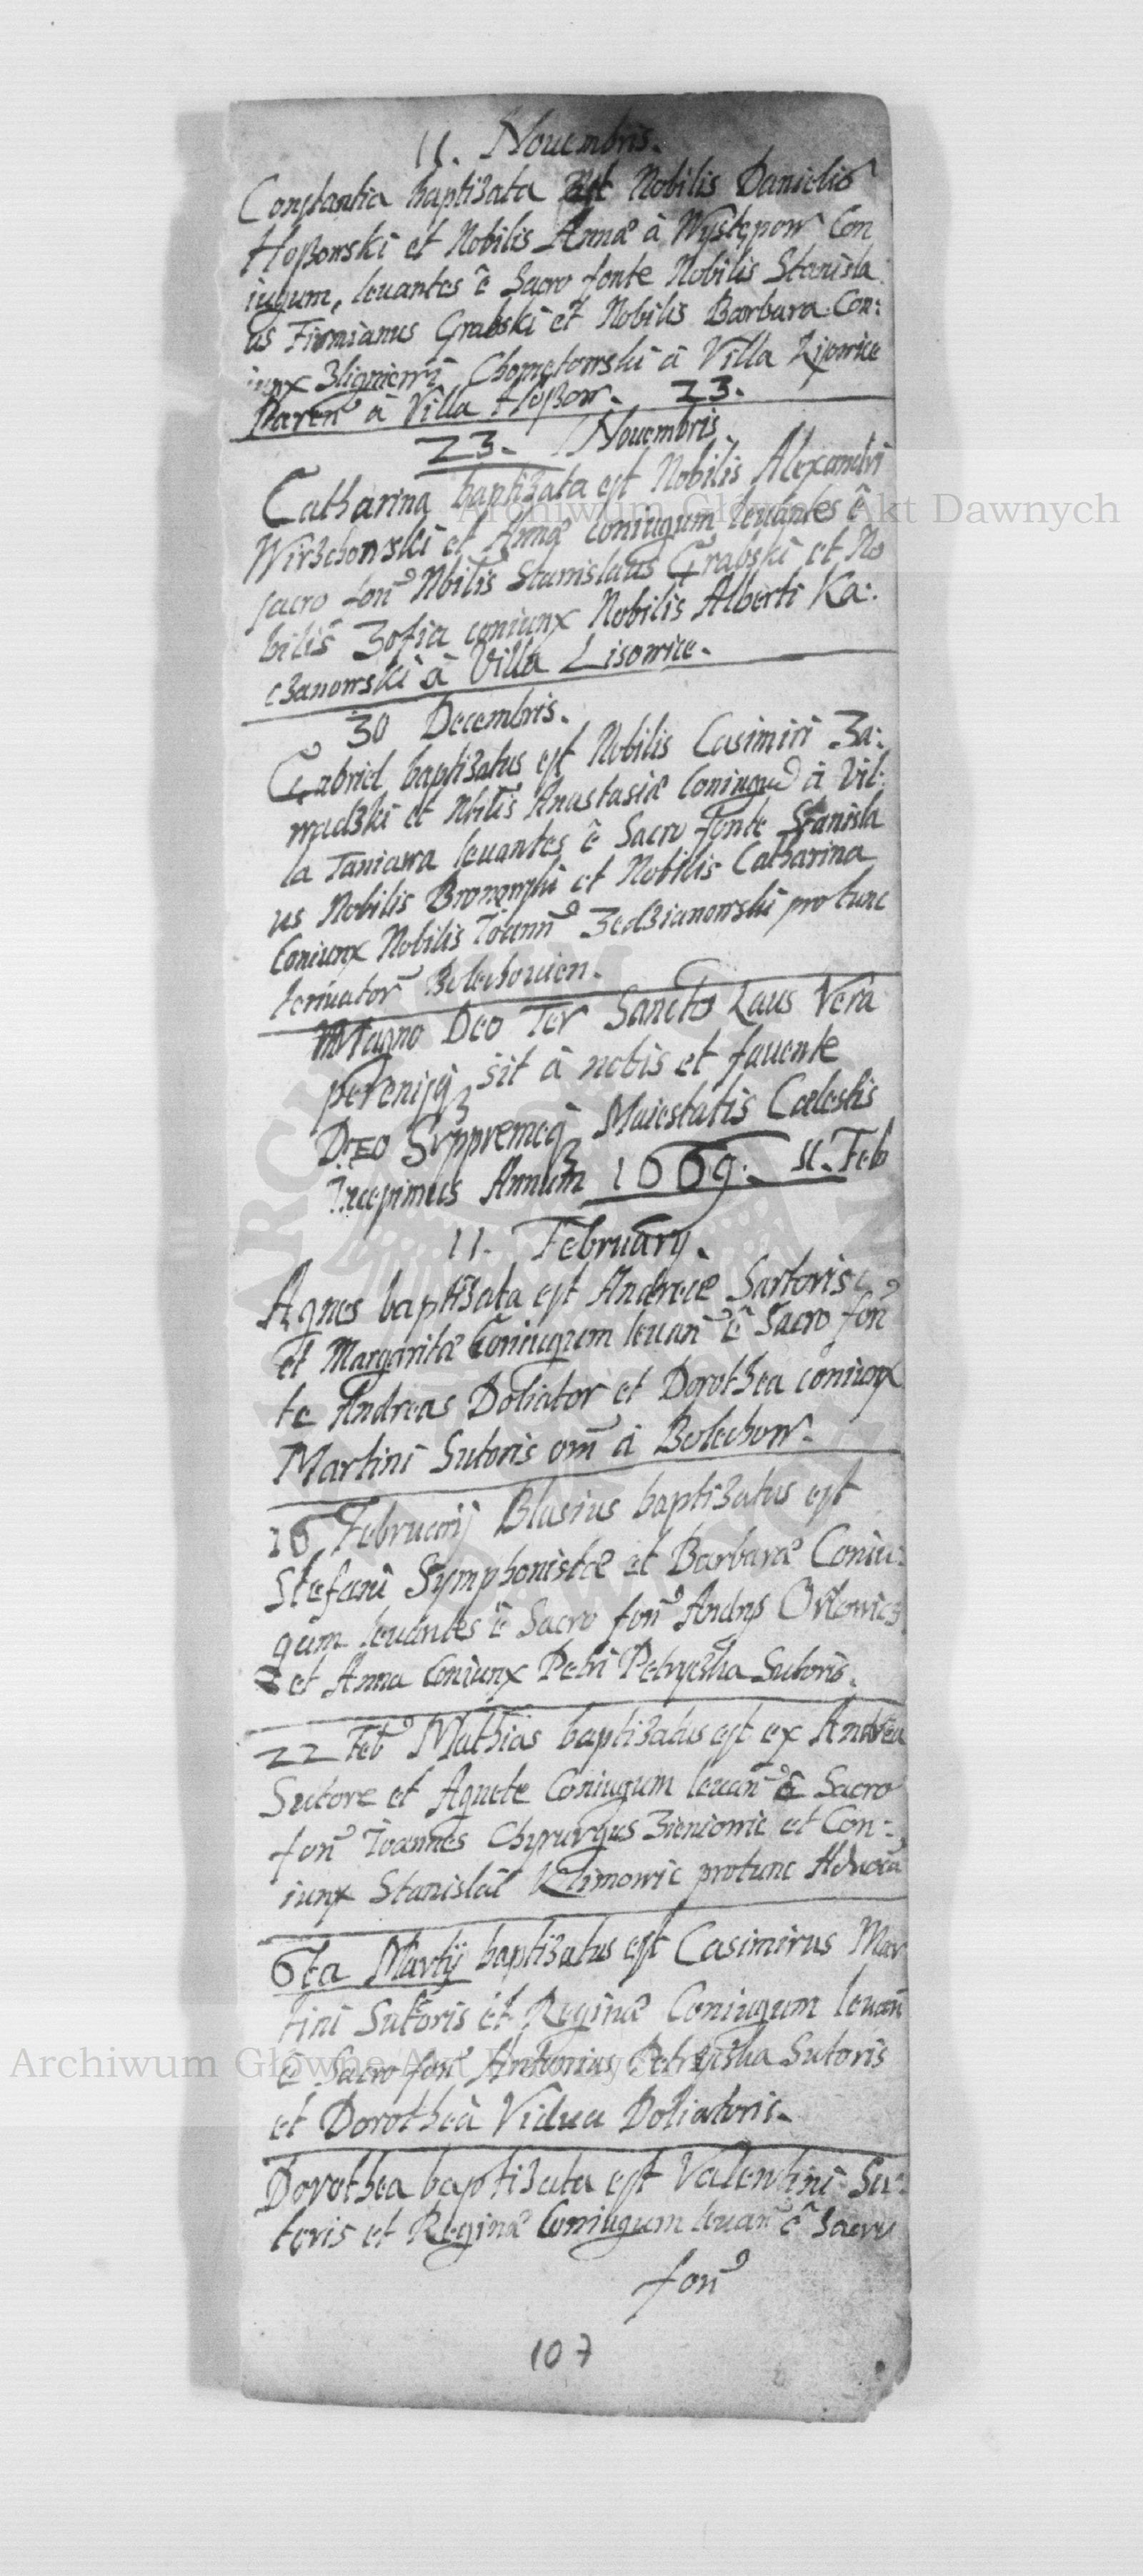 11. Novembris.
Constantia baptizata est Nobilis Danielis
Hoßowski et Nobilis Annæ à Występow Con
iugum, leuantes ê Sacro fonte Nobilis Stanisla
us Firmianus Grabski et Nobilis Barbara Con:
iunx Chometowski à Villa Lisowice
Paren à Villa Hoßow. 23.
23. Novembris.
Catharina baptizata est Nobilis Alexandri
Wirzchowski et Annæ coniugum leuantes ê
sacro fon Nbilis Stanislaus Grabski et No
bilis Zofia coniunx Nobilis Alberti Ka:
czanowski à Villa Lisowice.
30 Decembris.
Gabriel baptizatus est Nobilis Casimiri Za:
wadzki et Nbilis Anastasiæ Coniugũ à Vil:
la Taniawa leuantes ê Sacro fonte Stanisla
us Nobilis et Nobilis Catharina
Coniunx Nobilis Ioann Zedzianowski protunc
Bolechouien.
Magno Deo Ter Sancto Laus Vera
perenisq sit à nobis et fauente
DEO Suppremeq Maiestatis Cœlestis
Incepimus Annum 1669. 11. Feb
11. February.
Agnes baptizata est Andreæ Sartoris
et Margaritæ Coniugum leuan ê Sacro fon
te Andreas Doliator et Dorothea coniunx
Martini Sutoris om à Bolechow.
16 Februarij Blasius baptizatus est
Stefani Symphonistæ et Barbaræ Coniu:
gum leuantes ê Sacro fon Andrys Orłowicz
et Anna Coniunx Petri Petryszka Sutoris.
22 Feb Mathias baptizatus est ex Andrea
Sutore et Agnete Coniugum leuan ê Sacro
fon Ioannes Chyrurgus Zieniowic et Con:
iunx Stanislai Klimowic protunc Aduoca
6ta Martij baptizatus est Casimirus Mar
tini Sutoris et Reginæ Coniugum leuan
ê Sacro fon Antonius Petryszka Sutoris
et Dorothea Vidua Doliatoris.
Dorothea baptizata est Valentini Su:
toris et Reginæ Coniugum leuan ê Sacro
fon
107
Archiwum Główne Akt Dawnych
Archiwum Główne Akt Dawnych